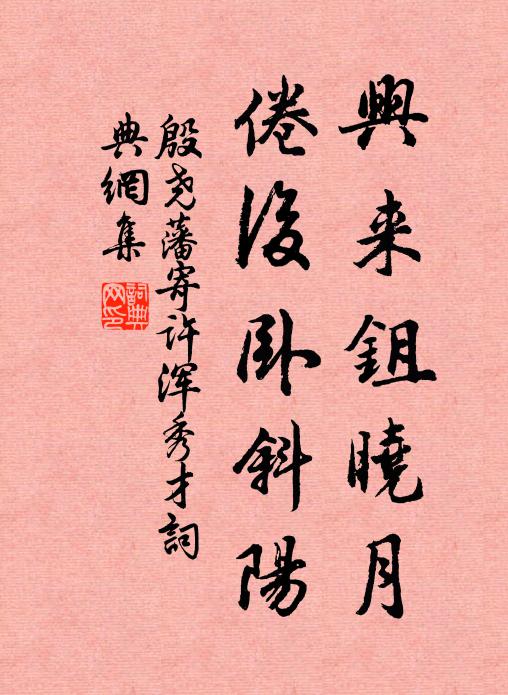 興来鉏曉月
倦後卧斜陽
殷尧藩寄许浑秀才詞
典網集
詞典网印